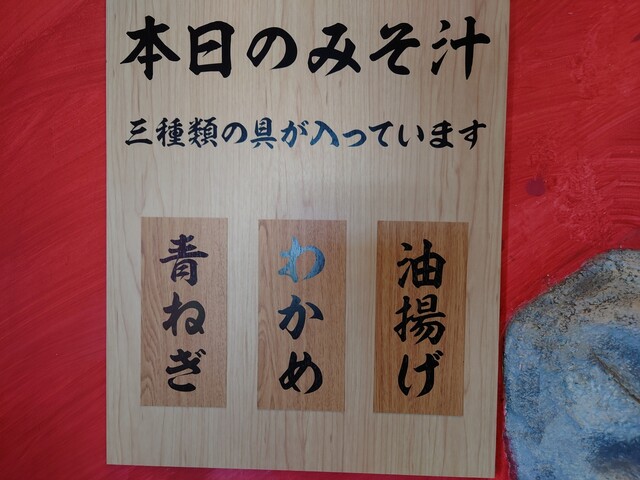 本日のみそ汁
三種類の具が入っています
油揚げ
わかめ
青ねぎ